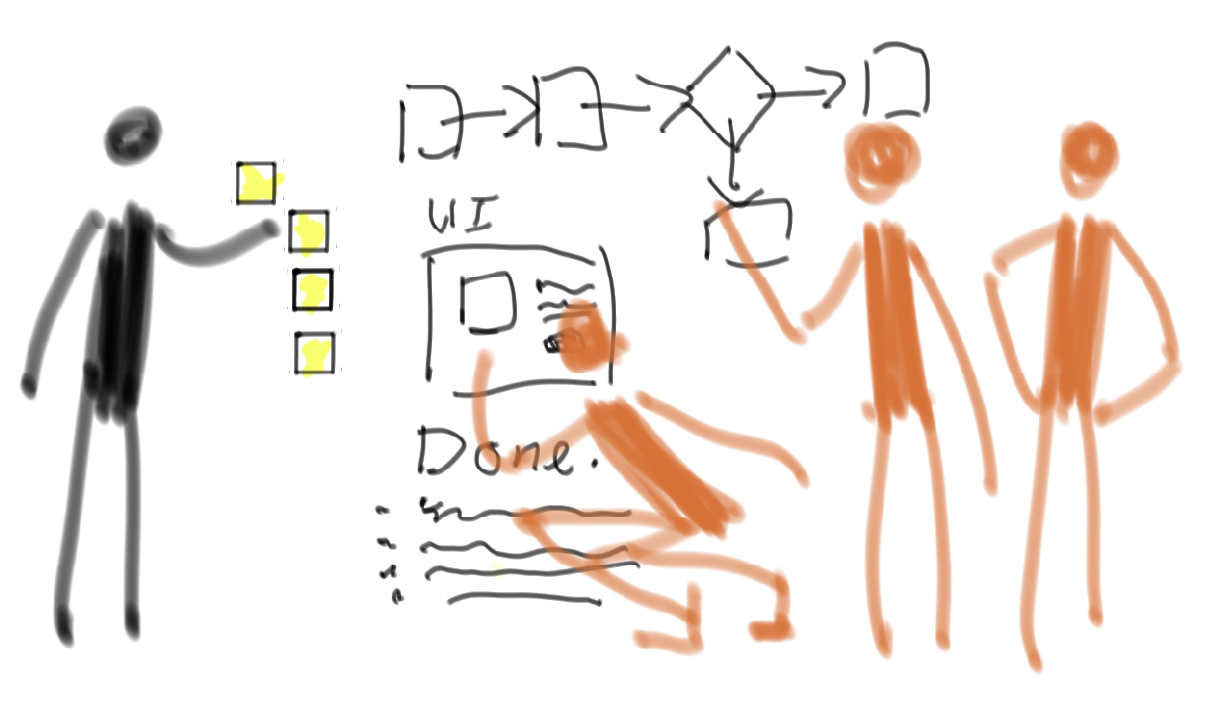 UI
Done.